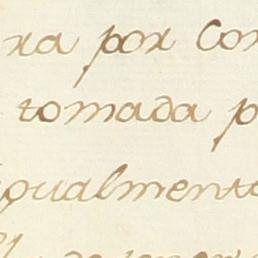 ra por Con
tomada p
igualmente